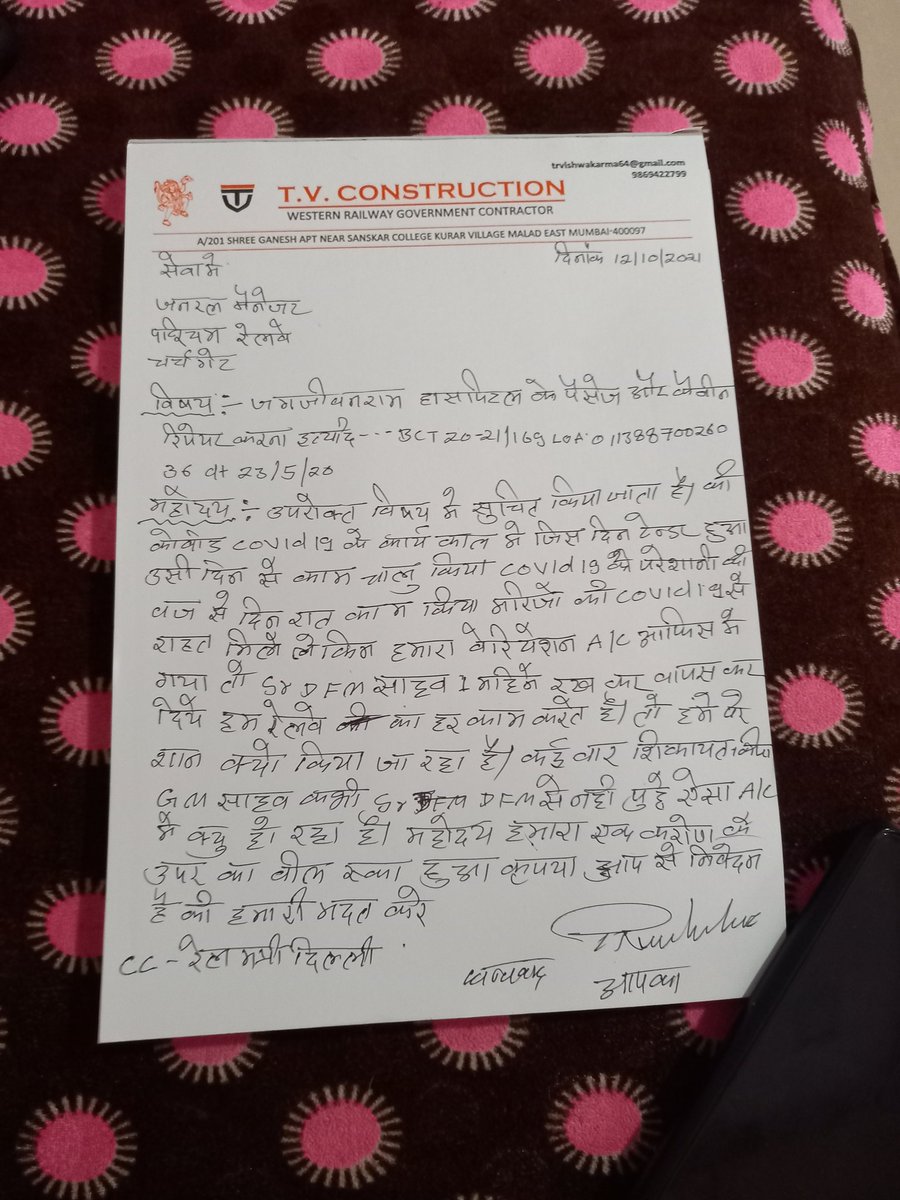 trvishwakarma64@gmail.com
9869422799
T.V. CONSTRUCTION
WESTERN RAILWAY GOVERNMENT CONTRACTOR
A/201 SHREE GANESH APT NEAR SANSKAR COLLEGE KURAR VILLAGE MALAD EAST MUMBAI-400097
सेवा मे
दिनांक 12/10/2021
जनरल मैनेजर
पश्चिम रेलवे
चर्चगेट
विषय :- जगजीवनराम हासपिटल के पैसेज और कैबीन
रिपेयर करना इत्यादि --- BCT 20-21/169 LOA 011388700260
36 dt 23/5/20
महोदय :- उपरोक्त विषय मे सुचित किया जाता है। की
कोवीड COVID19 के कार्य काल मे जिस दिन टेन्डर हुआ
उसी दिन से काम चालु किया COVID19 के परेशानी की
वज से दिन रात काम किया मरिजो को COVID19 से
राहत मिले लेकिन हमारा वेरियेशन A/C आफिस मे
गया तो Sr DFM साहब 1 महिने रख कर वापस कर
दिये हम रेलवे का हर काम करते है। तो हमे परे
शान क्यो किया जा रहा है। कई बार शिकायत किया
GM साहब कभी Sr DFM से नही पुछे ऐसा A/C
मे क्यु हो रहा है। महोदय हमारा एक करोण के
उपर का बील रुका हुआ कृपया आप से निवेदन
है की हमारी मदत करे
CC - रेल मंत्री दिल्ली
धन्यवाद
आपका